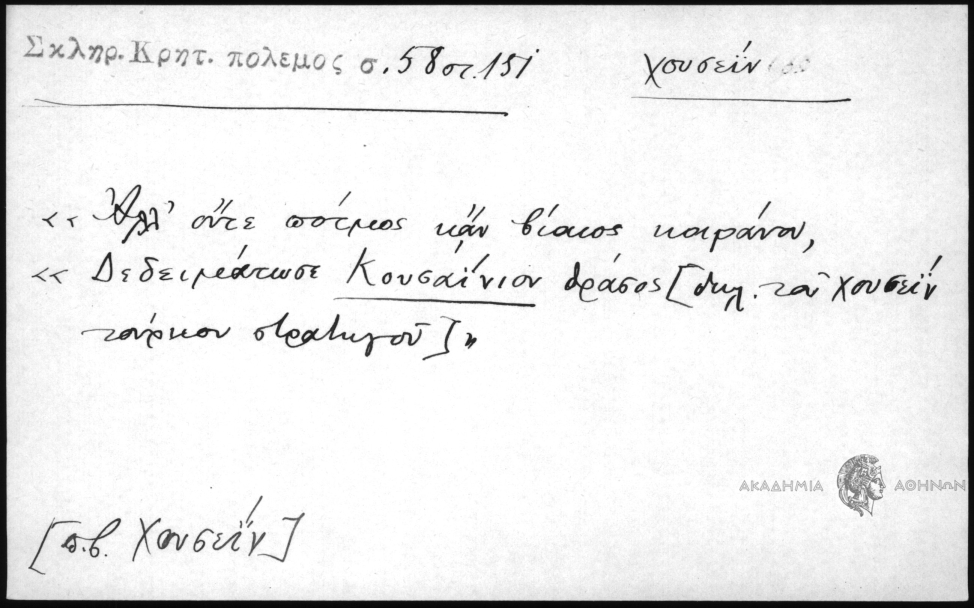 Σκληρ. Κρητ. πολεμος σ. 58 στ. 151
Χουσεΐν
« Ἀλλ' οὔτε πότμος κἄν βίαιος καιράνου,
« Δεδειμάτωσε Κουσαΐνιον θράσος [δηλ. τοῦ Χουσεΐν
τούρκου στρατηγοῦ]»
ΑΚΑΔΗΜΙΑ ΑΘΗΝΩΝ
[π.β. Χουσεΐν]